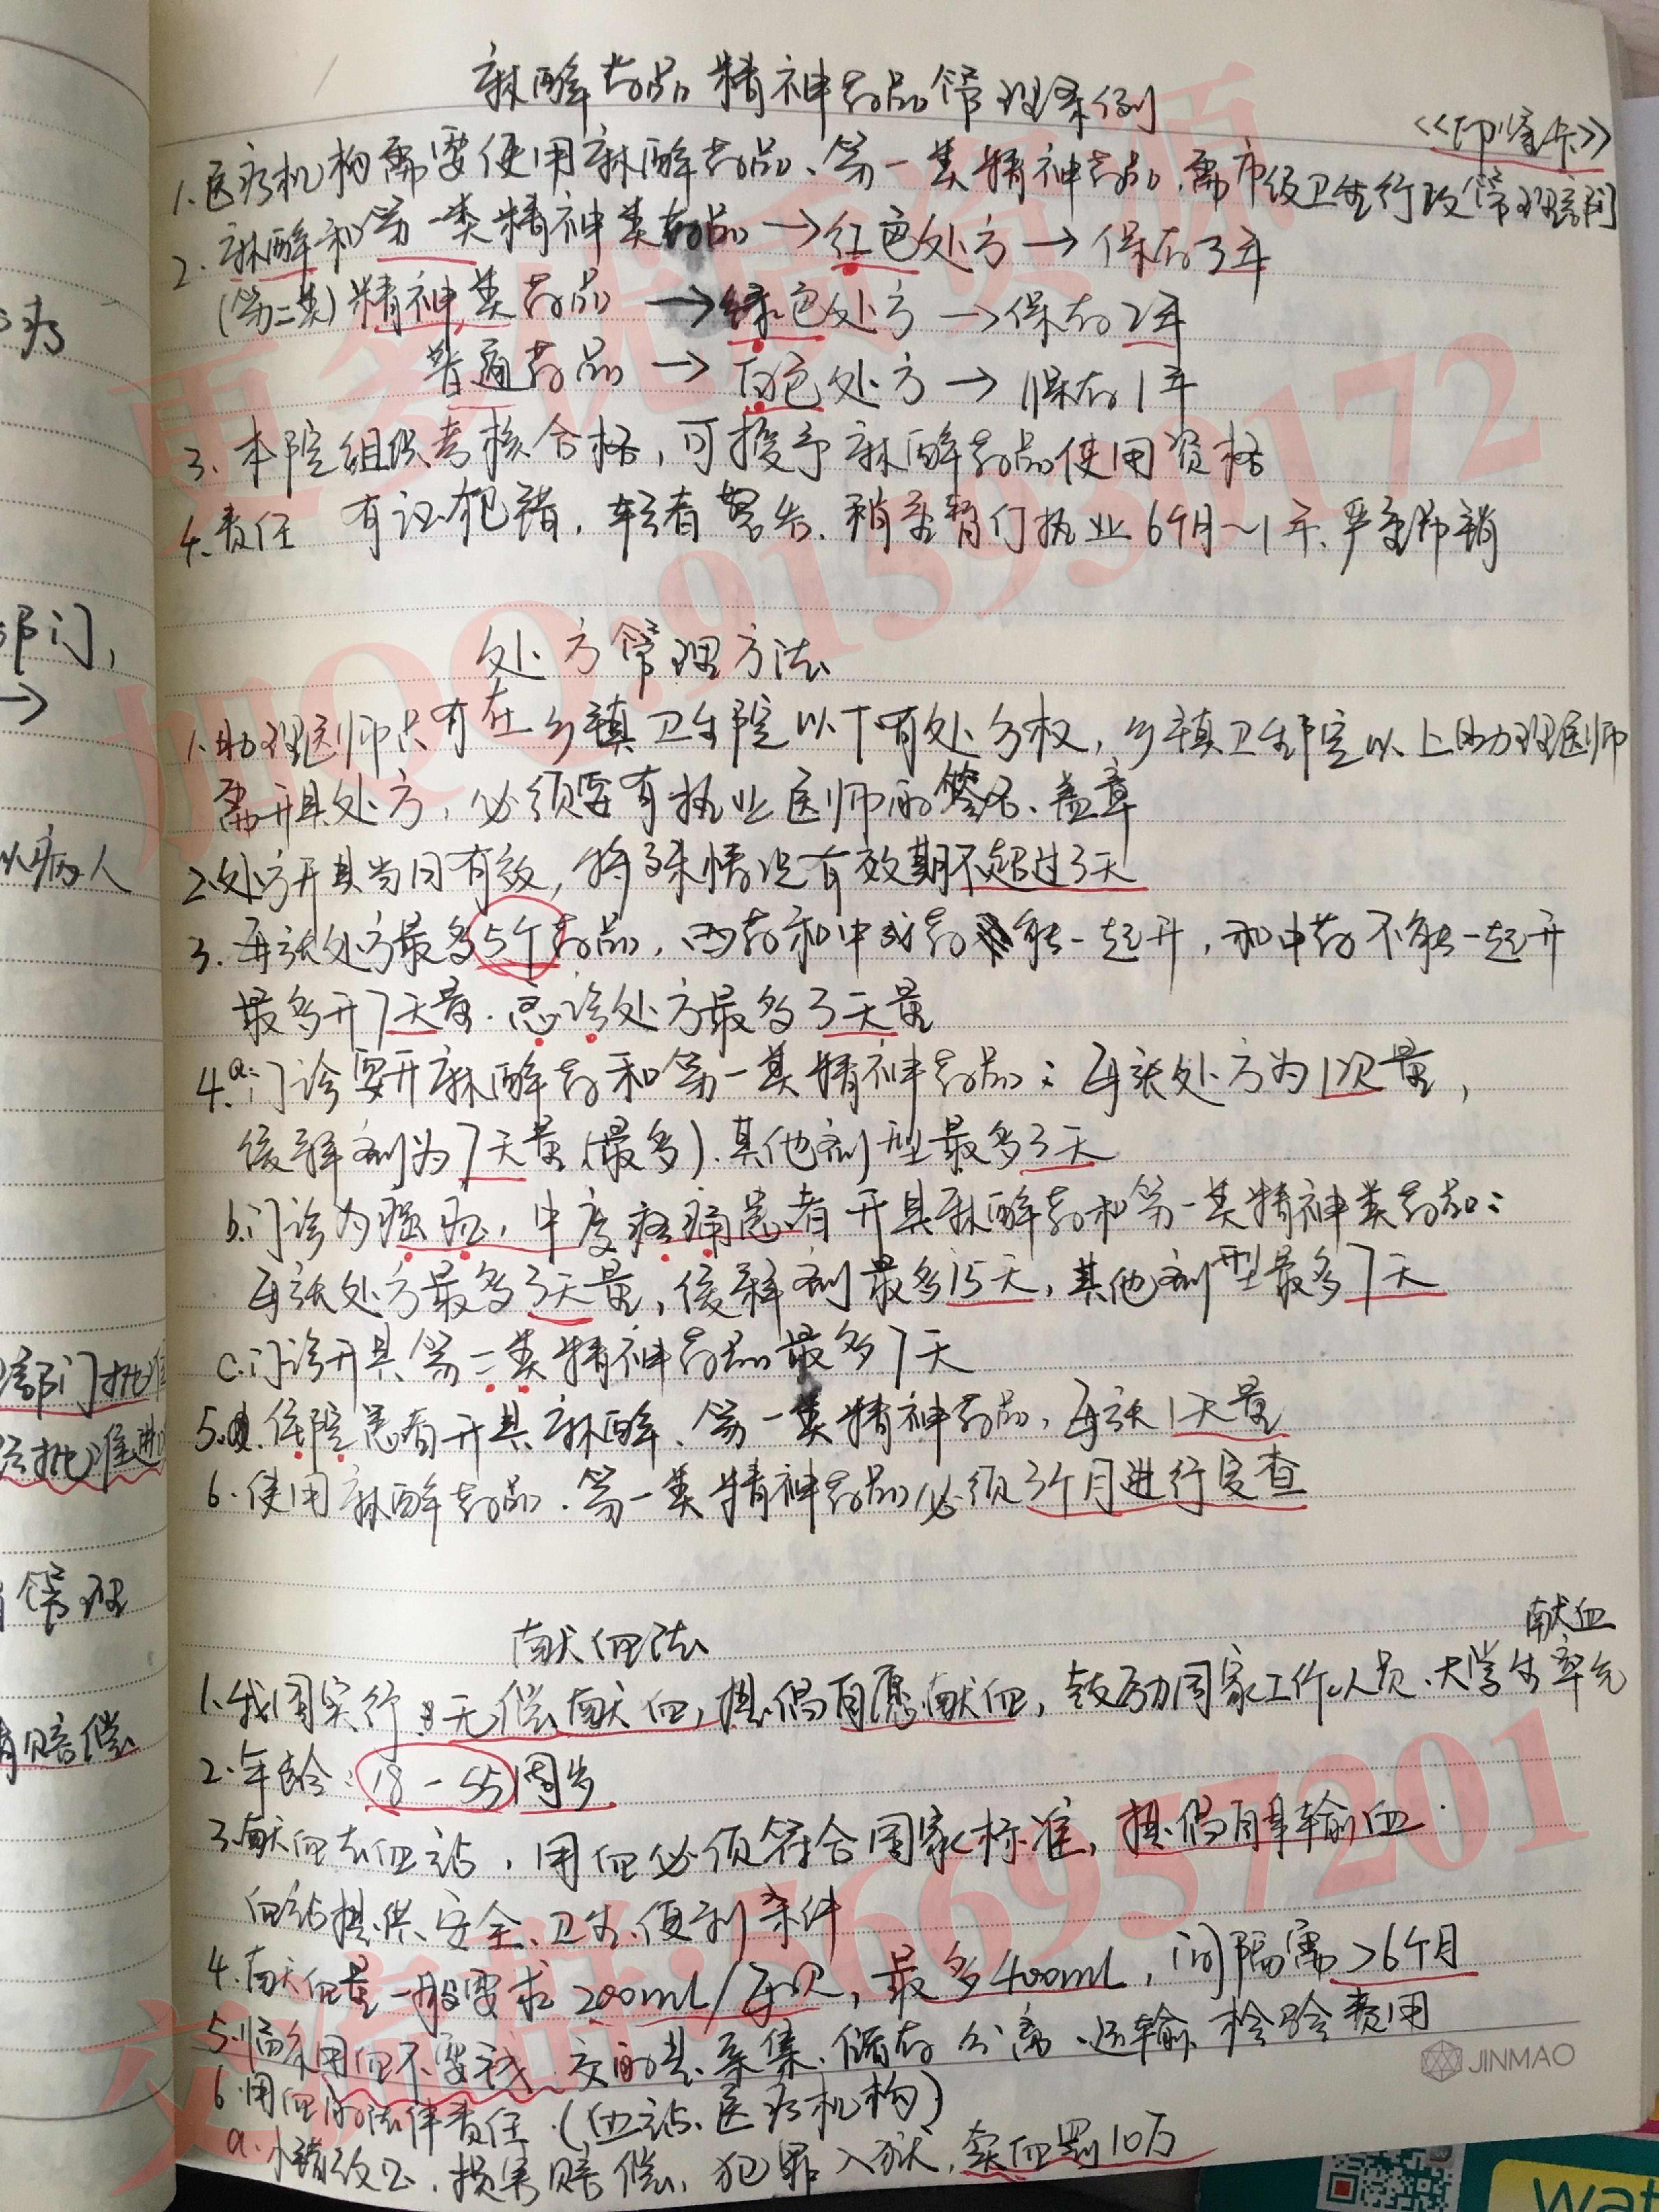 麻醉药品精神药品管理条例
《印鉴卡》
1.医疗机构需要使用麻醉药品、第一类精神药品,需市级卫生行政管理部门
2.麻醉和第一类精神类药品→红色处方→保存3年
(第二类)精神类药品→绿色处方→保存2年
普通药品→白色处方→保存1年
3.本院组织考核合格,可授予麻醉药品使用资格
4.责任 有证犯错,轻者警告,稍重暂停执业6个月~1年、严重吊销
处方管理方法
1.助理医师只有在乡镇卫生院以下有处方权,乡镇卫生院以上助理医师
需开具处方,必须要有执业医师的签名、盖章
2.处方开具当日有效,特殊情况有效期不超过3天
3.每张处方最多5个药品,西药和中成药能一起开,和中药不能一起开
最多开7天量.急诊处方最多3天量
4.a:门诊要开麻醉药和第一类精神药品:每张处方为1次量,
缓释剂为7天量(最多).其他剂型最多3天
b.门诊为癌症,中度疼痛患者开具麻醉药和第一类精神类药品:
每张处方最多3天量,缓释剂最多15天,其他剂型最多7天
c.门诊开具第二类精神药品最多7天
5.住院患者开具麻醉、第一类精神药品,每张1天量
6.使用麻醉药品.第一类精神药品必须3个月进行复查
献血法
献血
1.我国实行:无偿献血,提倡自愿献血,鼓励国家工作人员、大学生率先
2.年龄:18-55周岁
3.献血去血站,用血必须符合国家标准,提倡自身输血.
血站提供安全、卫生、便利条件
4.献血量一般要求200mL/每次,最多400mL,间隔需>6个月
5.临床用血不要钱.交的是采集、储存 分离、运输 检验费用
6.用血的法律责任.(血站、医疗机构)
a.小错改正,损害赔偿,犯罪入狱,卖血罚10万
JINMAO
更多优质资源
加QQ:915930172
交流群:566957201
疗
部门,
→
以病人
部门批准
批准进
管理
赔偿
wat